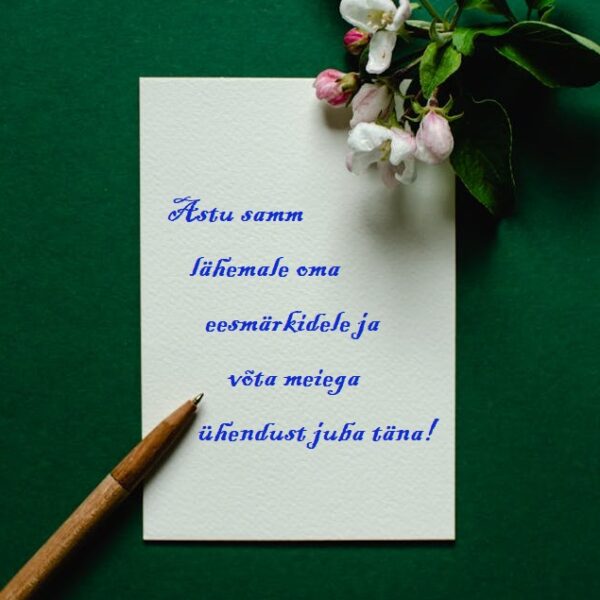 Astu samm
lähemale oma
eesmärkidele ja
võta meiega
ühendust juba täna!